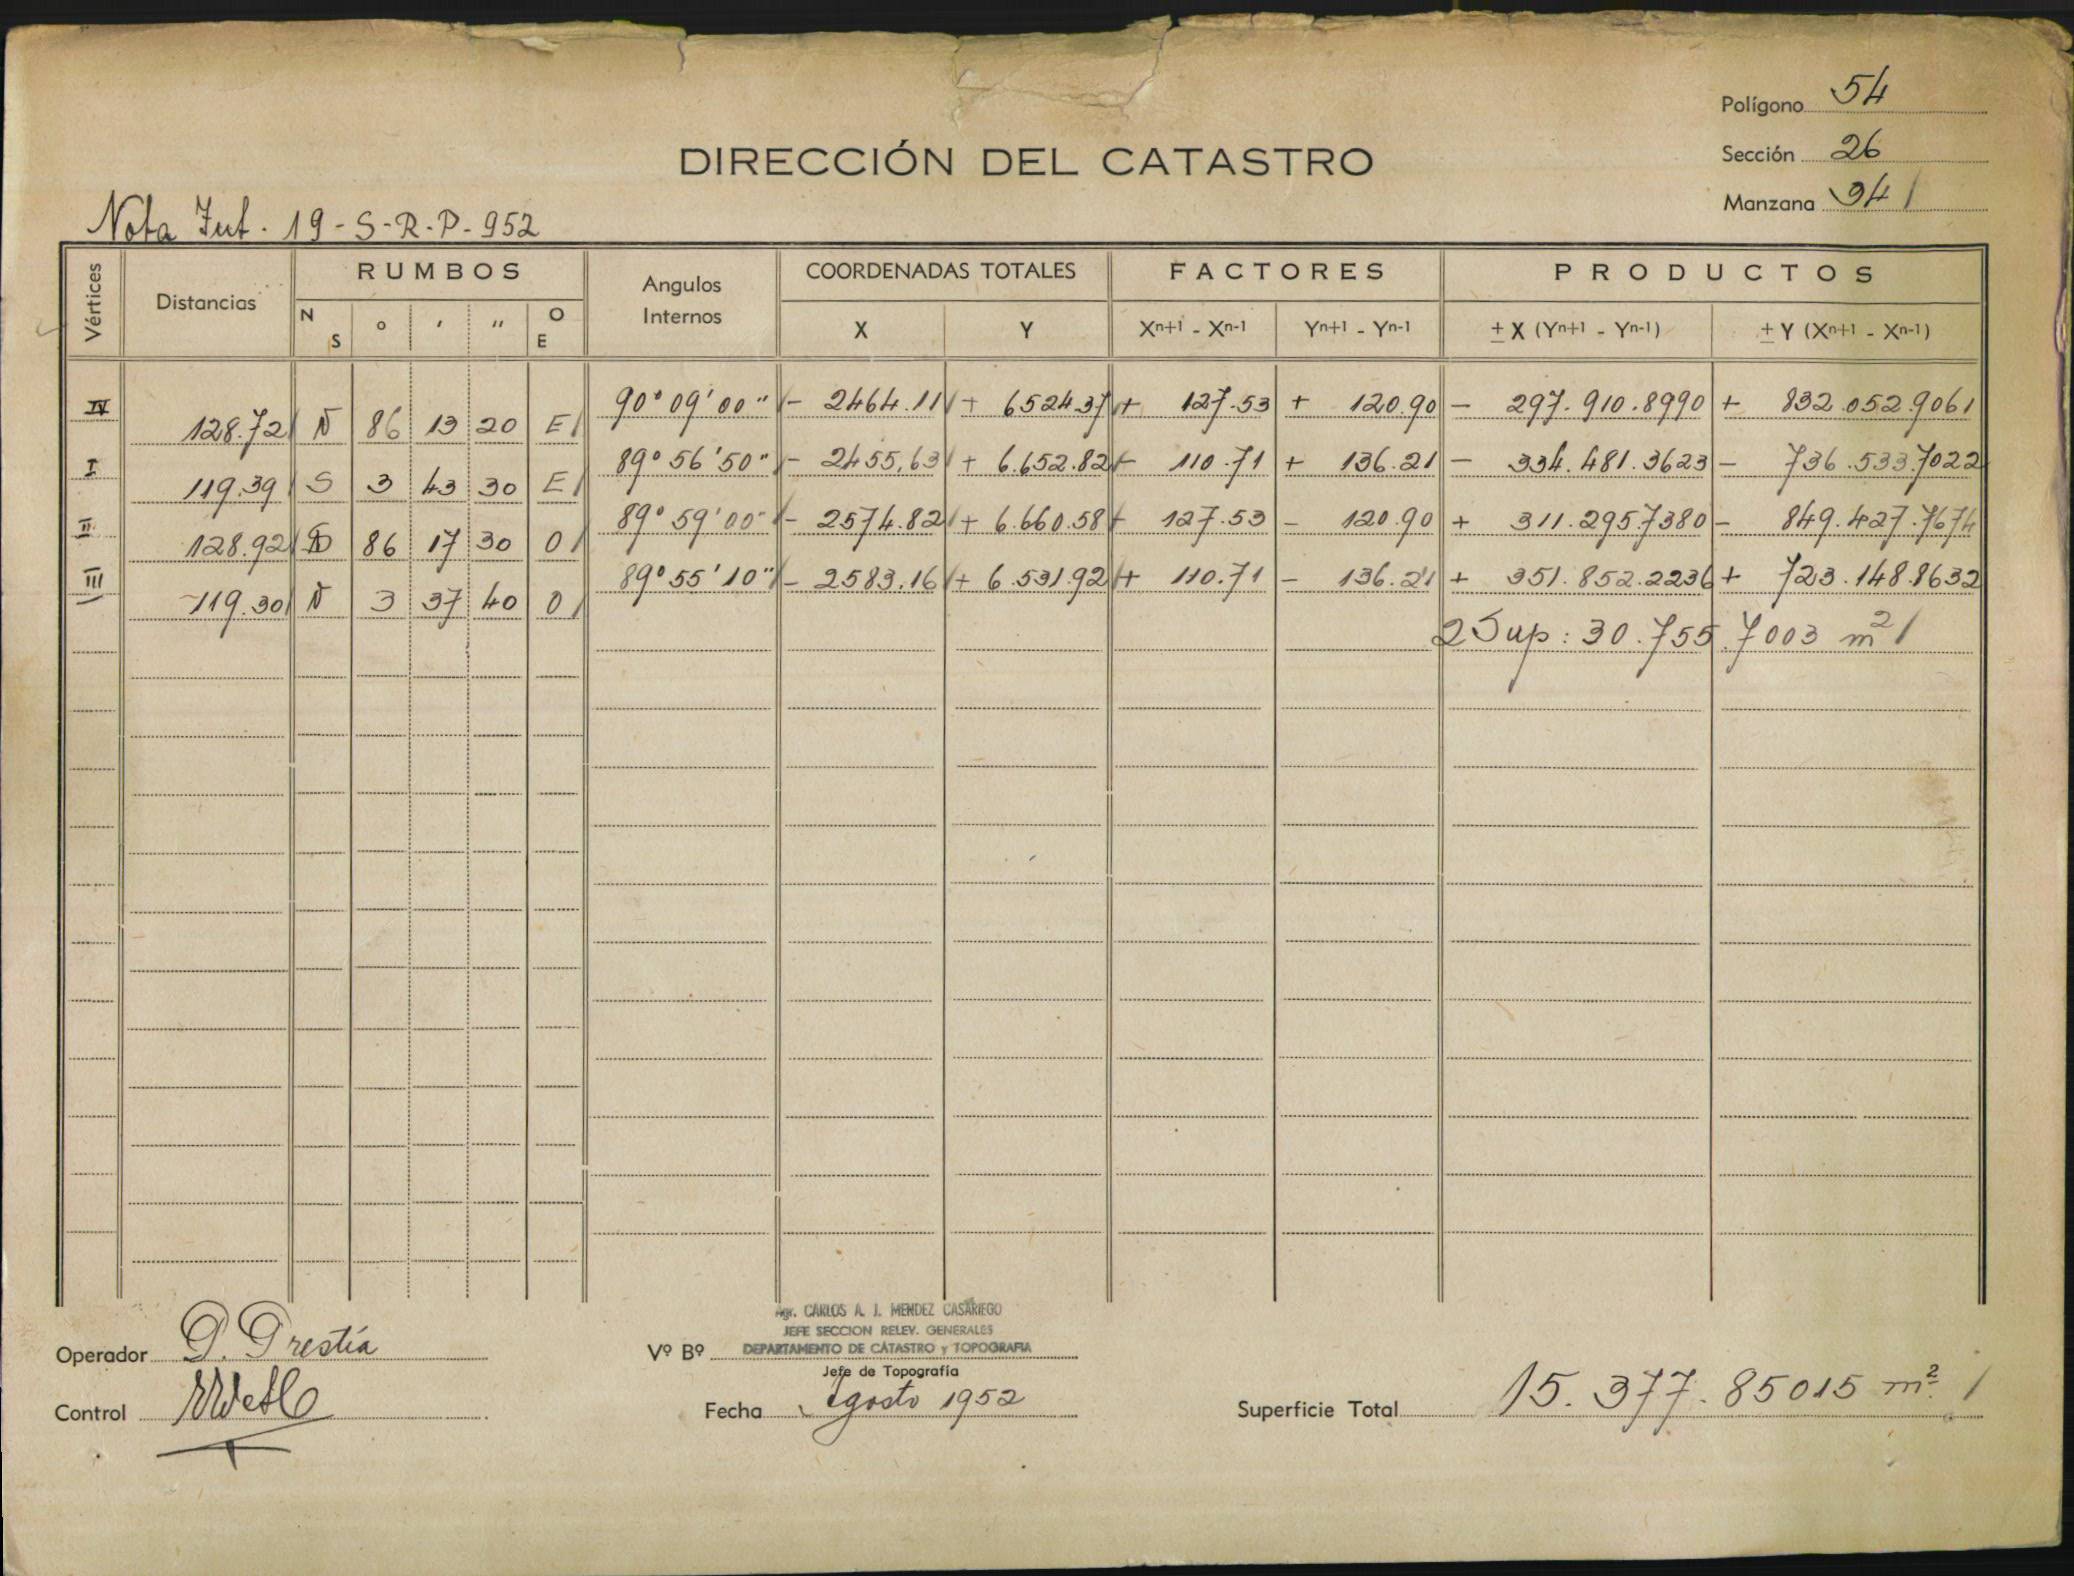 Polígono 54
DIRECCIÓN DEL CATASTRO
Sección 26
Manzana 94
Nota Int. 19-S-R-P-952
Vértices Distancias RUMBOS Angulos Internos COORDENADAS TOTALES FACTORES PRODUCTOS
N S ° ' " O E X Y Xn+1 - Xn-1 Yn+1 - Yn-1 ± X (Yn+1 - Yn-1) ± Y (Xn+1 - Xn-1)
IV 90°09'00" - 2464.11 + 6524.37 + 127.53 + 120.90 - 297.910.8990 + 832.052.9061
128.72 N 86 13 20 E
I 89°56'50" - 2455,63 + 6.652.82 - 110.71 + 136.21 - 334.481.3623 - 736.533.7022
119.39 S 3 43 30 E
II 89°59'00" - 2574.82 + 6.660.58 - 127.53 - 120.90 + 311.295.7380 - 849.427.7674
128.92 S 86 17 30 O
III 89°55'10" - 2583.16 + 6.531.92 + 110.71 - 136.21 + 351.852.2236 + 723.148.8632
119.30 N 3 37 40 O
2 Sup: 30.755.7003 m²
Operador P. Prestía
Vº Bº
Agr. CARLOS A. J. MENDEZ CASARIEGO
JEFE SECCION RELEV. GENERALES
DEPARTAMENTO DE CATASTRO y TOPOGRAFIA
Jefe de Topografía
Control
Fecha Agosto 1952
Superficie Total 15.377.85015 m²